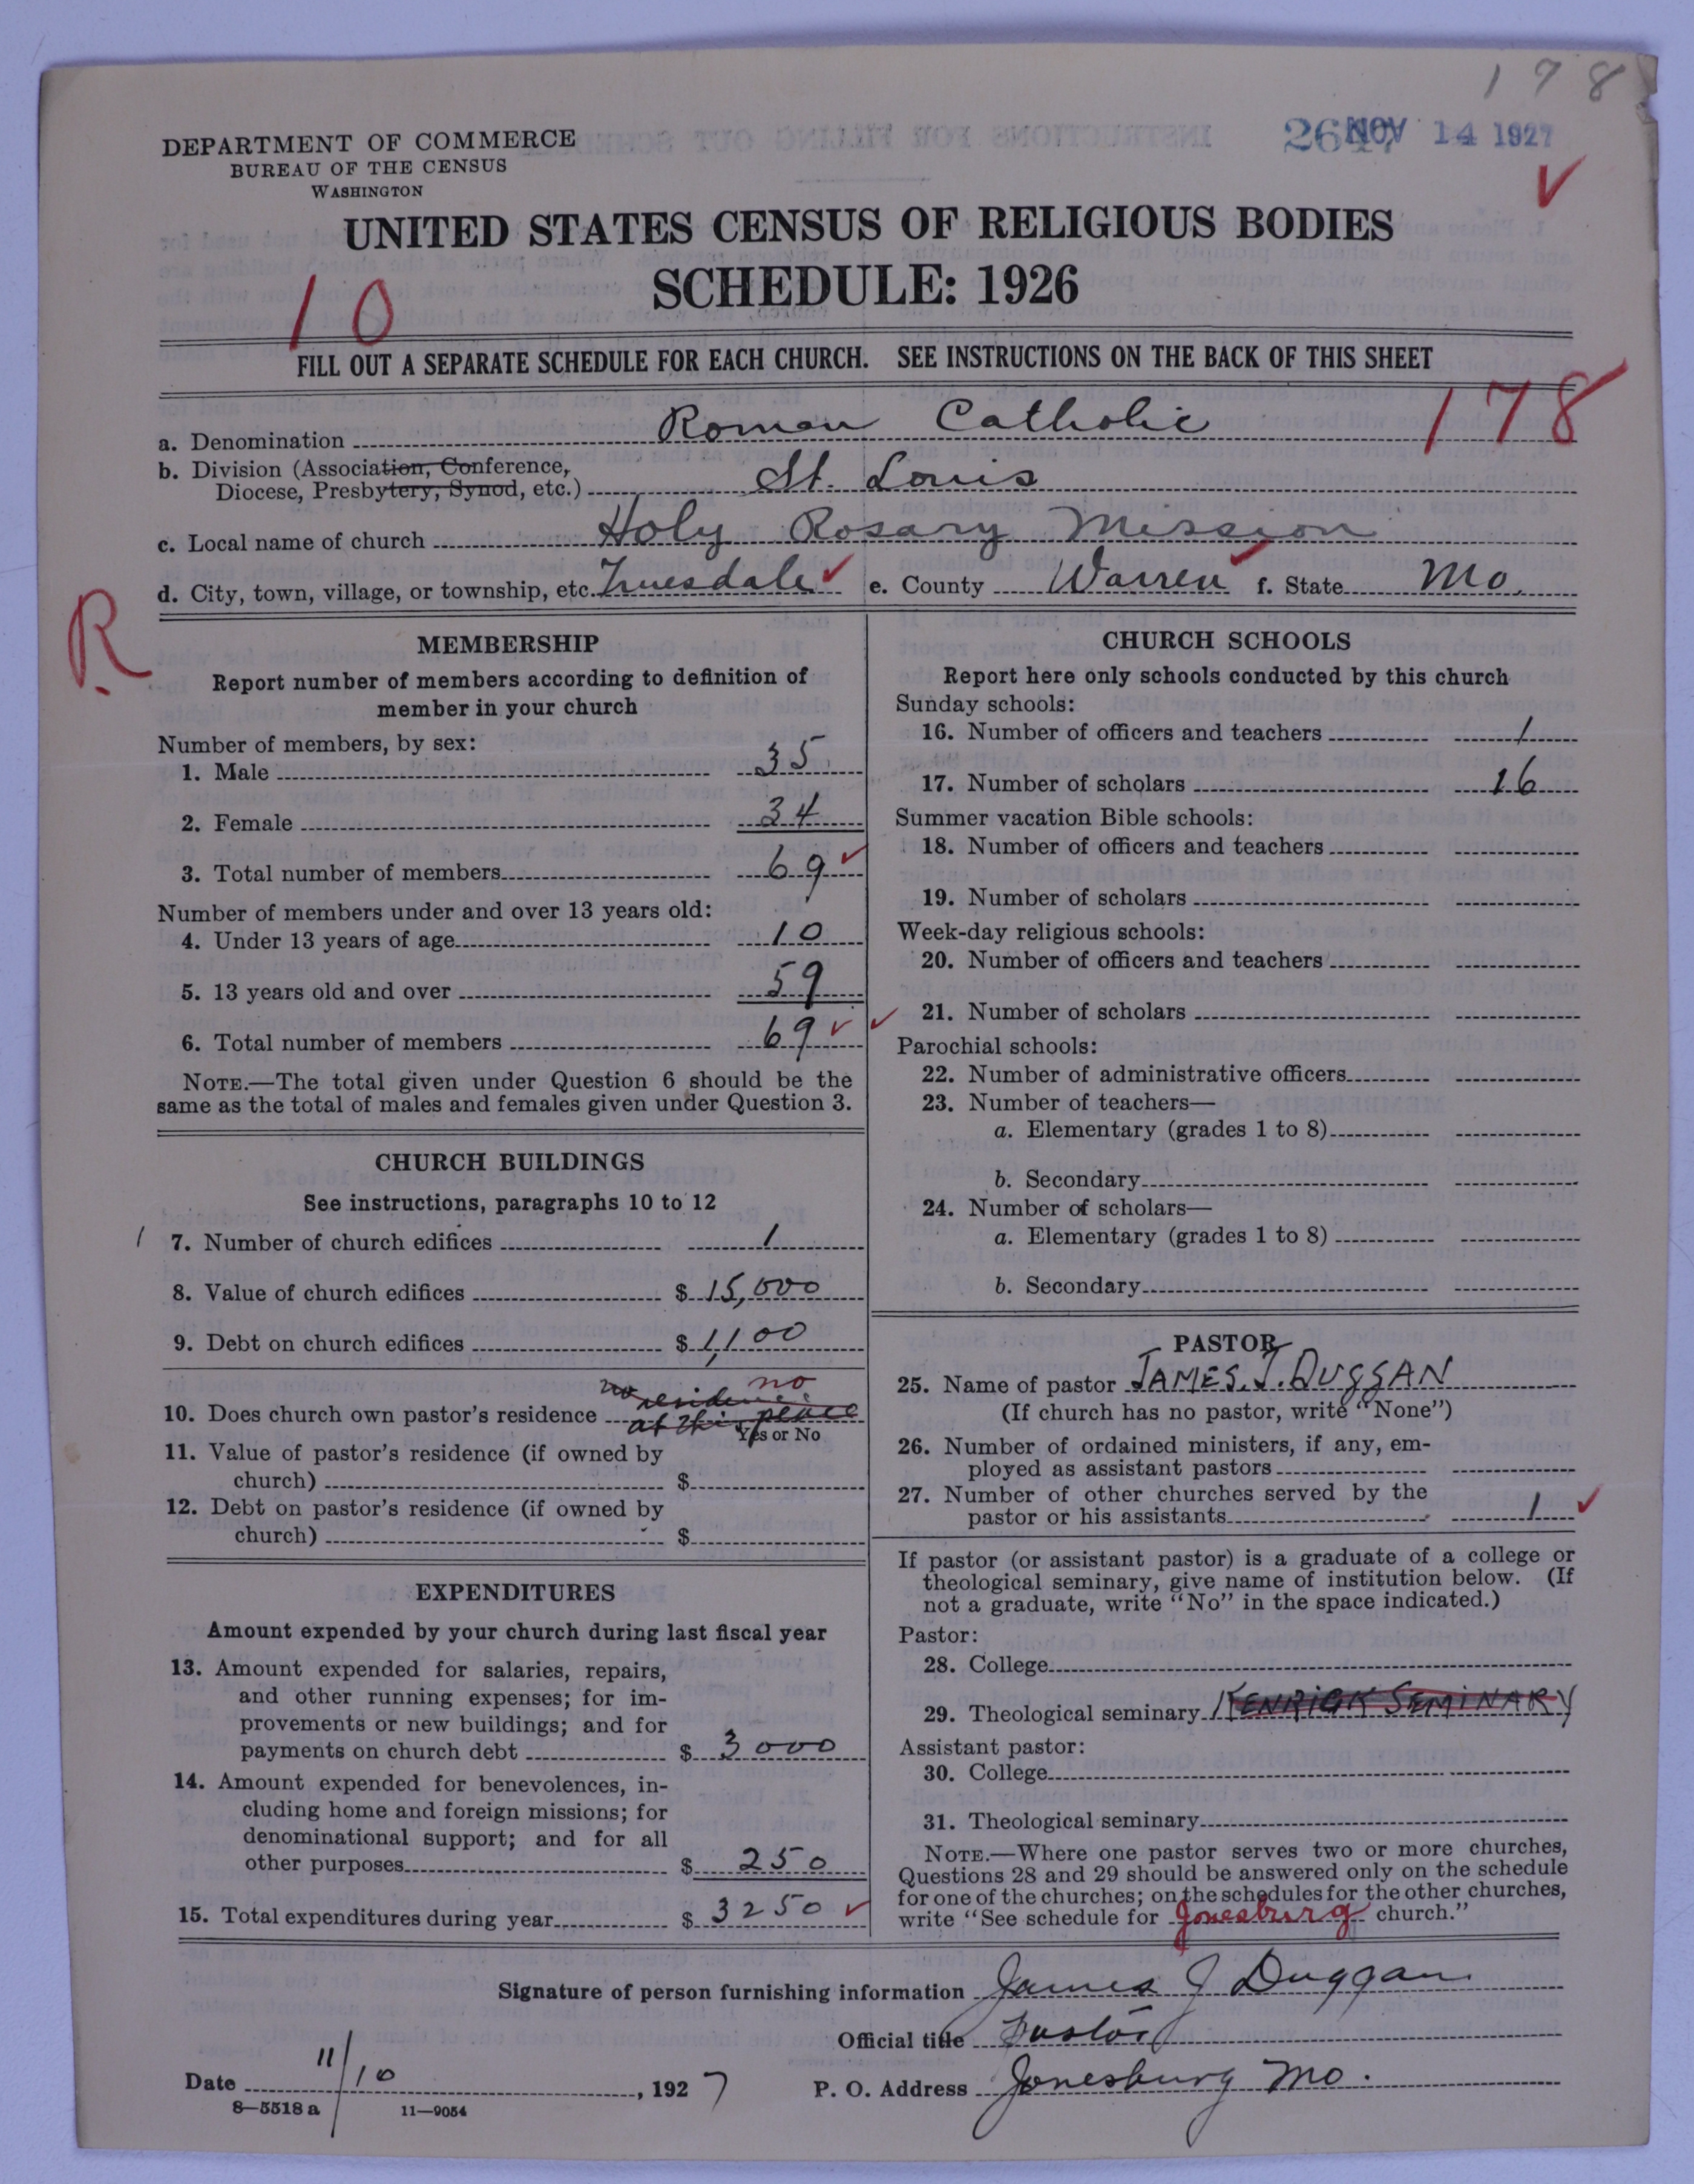 178
DEPARTMENT OF COMMERCE
BUREAU OF THE CENSUS
WASHINGTON
NOV 14 1927
UNITED STATES CENSUS OF RELIGIOUS BODIES
SCHEDULE: 1926
10
FILL OUT A SEPARATE SCHEDULE FOR EACH CHURCH. SEE INSTRUCTIONS ON THE BACK OF THIS SHEET
178
a. Denomination Roman Catholic
b. Division (Association, Conference,
Diocese, Presbytery, Synod, etc.) St. Louis
c. Local name of church Holy Rosary Mission
d. City, town, village, or township, etc. Truesdale e. County Warren f. State Mo.
R
MEMBERSHIP
Report number of members according to definition of
member in your church
Number of members, by sex:
1. Male 35
2. Female 34
3. Total number of members 69
Number of members under and over 13 years old:
4. Under 13 years of age 10
5. 13 years old and over 59
6. Total number of members 69
NOTE.—The total given under Question 6 should be the
same as the total of males and females given under Question 3.
CHURCH BUILDINGS
See instructions, paragraphs 10 to 12
1 7. Number of church edifices 1
8. Value of church edifices $ 15,000
9. Debt on church edifices $ 1,100
no residence no
10. Does church own pastor's residence at this place
Yes or No
11. Value of pastor's residence (if owned by
church) $
12. Debt on pastor's residence (if owned by
church) $
EXPENDITURES
Amount expended by your church during last fiscal year
13. Amount expended for salaries, repairs,
and other running expenses; for im-
provements or new buildings; and for
payments on church debt $ 3000
14. Amount expended for benevolences, in-
cluding home and foreign missions; for
denominational support; and for all
other purposes $ 250
15. Total expenditures during year $ 3250
CHURCH SCHOOLS
Report here only schools conducted by this church
Sunday schools:
16. Number of officers and teachers 1
17. Number of scholars 16
Summer vacation Bible schools:
18. Number of officers and teachers
19. Number of scholars
Week-day religious schools:
20. Number of officers and teachers
21. Number of scholars
Parochial schools:
22. Number of administrative officers
23. Number of teachers—
a. Elementary (grades 1 to 8)
b. Secondary
24. Number of scholars—
a. Elementary (grades 1 to 8)
b. Secondary
PASTOR
25. Name of pastor JAMES. J. DUGGAN
(If church has no pastor, write "None")
26. Number of ordained ministers, if any, em-
ployed as assistant pastors
27. Number of other churches served by the
pastor or his assistants 1
If pastor (or assistant pastor) is a graduate of a college or
theological seminary, give name of institution below. (If
not a graduate, write "No" in the space indicated.)
Pastor:
28. College
29. Theological seminary KENRICK SEMINARY
Assistant pastor:
30. College
31. Theological seminary
NOTE.—Where one pastor serves two or more churches,
Questions 28 and 29 should be answered only on the schedule
for one of the churches; on the schedules for the other churches,
write "See schedule for Jonesburg church."
Signature of person furnishing information James J Duggan
Official title Pastor
Date 11/10, 1927 P. O. Address Jonesburg Mo.
8—5518 a 11—9054